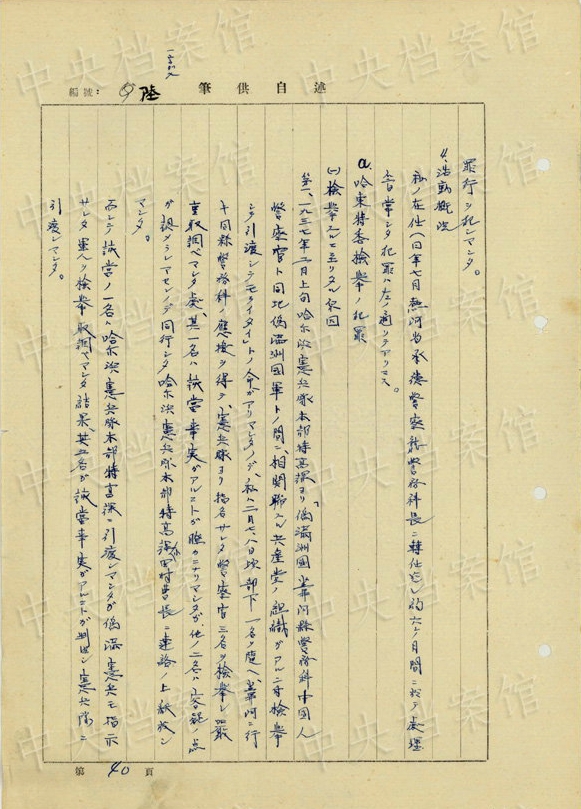 述自供筆
編號:
陸
罪行ヲ犯シマシタ。
4、活動概況
私ノ在任ハ同年七月熱河省承徳警察務科長ニ轉任迄ノ約六ヶ月間ニ於テ處理
当シタ犯罪ハ左ノ通リデアリマス。
a、哈東特委検挙ノ犯罪
(一)検挙スルニ至リタル原因
第一、一九三七年二月上旬哈尔浜憲兵隊本部特高課ヨリ「偽満洲國葦河縣警務科中国人
警察官ト同地偽満洲國軍トノ間ニ、相関聯スル共産党ノ組織ガアルニ付検挙
シテ引渡シテモライタイ」トノ命ガアリマシタノデ、私ハ二月七、八日頃部下一名ヲ携ヘ葦河ニ行
キ同縣警務科ノ應援ヲ得テ、憲兵隊ヨリ指名サレタ警察官三名ヲ検挙シ厳
重取調ベマシタ処、其一名ハ該当事実ガアルコトガ瞭カニナリマシタガ、他ノ二名ハ容疑ノ点
ガ認メラレマセンノデ同行シタ哈尔浜憲兵隊本部特高課田村曹長ニ連絡ノ上釈放シ
マシタ。
而シテ該当ノ一名ハ哈尔浜憲兵隊本部特高課ニ引渡シマシタガ偽満憲兵モ指示
サレタ軍人ヲ検挙取調ベマシタ結果其三名ガ該当事実ガアルコトガ判明シ憲兵隊ニ
引渡シマシタ。
第 40 頁
中央档案馆